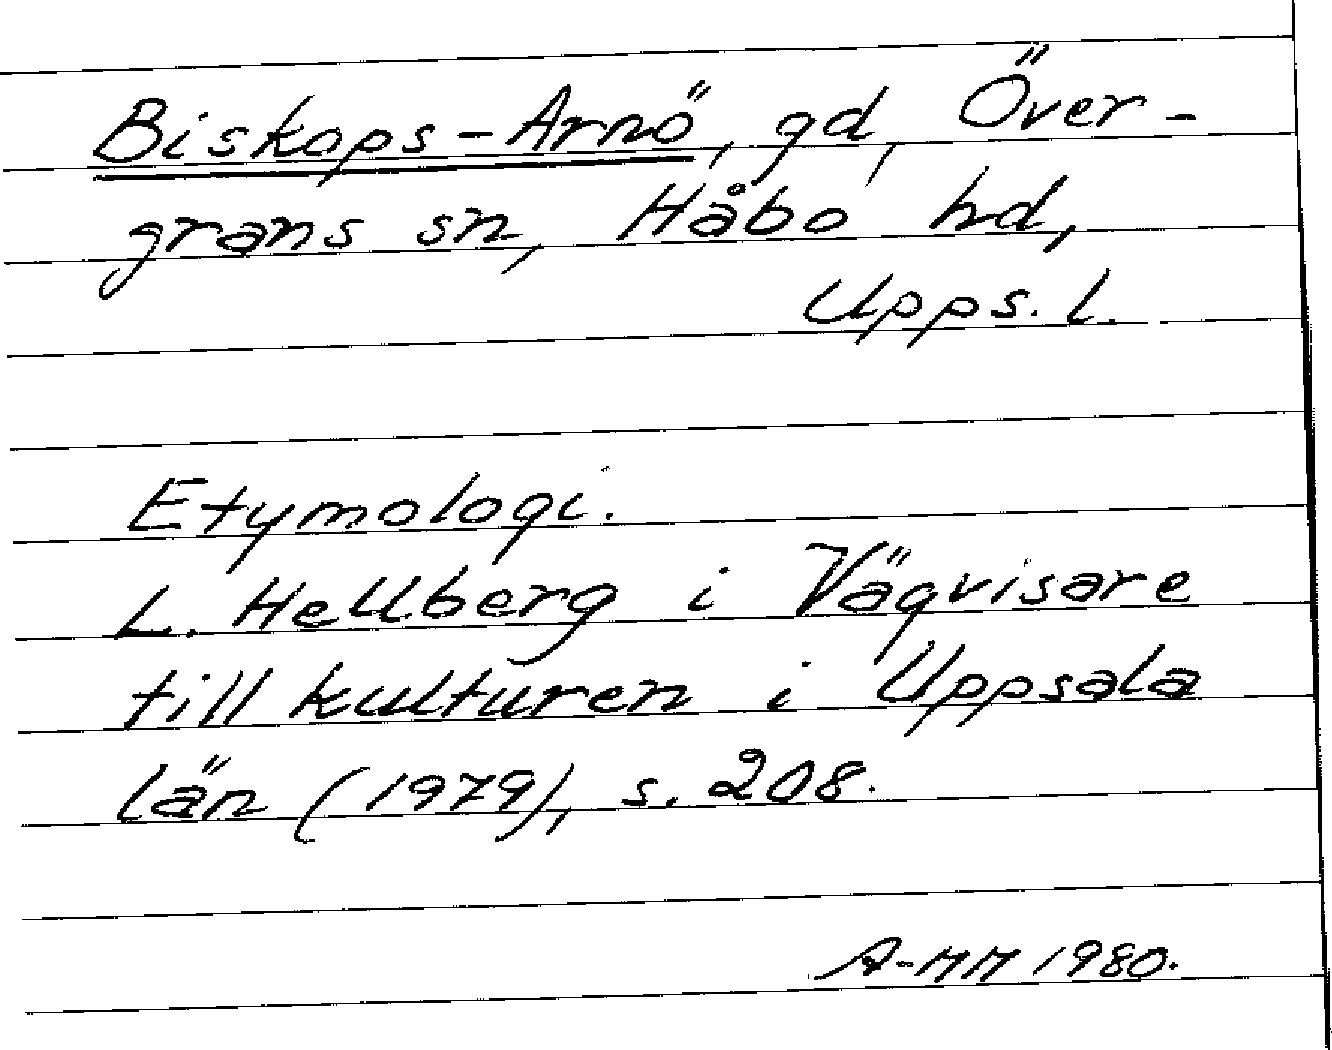 Biskops-Arnö, gd, Över-
grans sn, Håbo hd,
Upps. l.
Etymologi.
L. Hellberg i Vägvisare
till kulturen i Uppsala
län (1979), s. 208.
A-MH 1980.